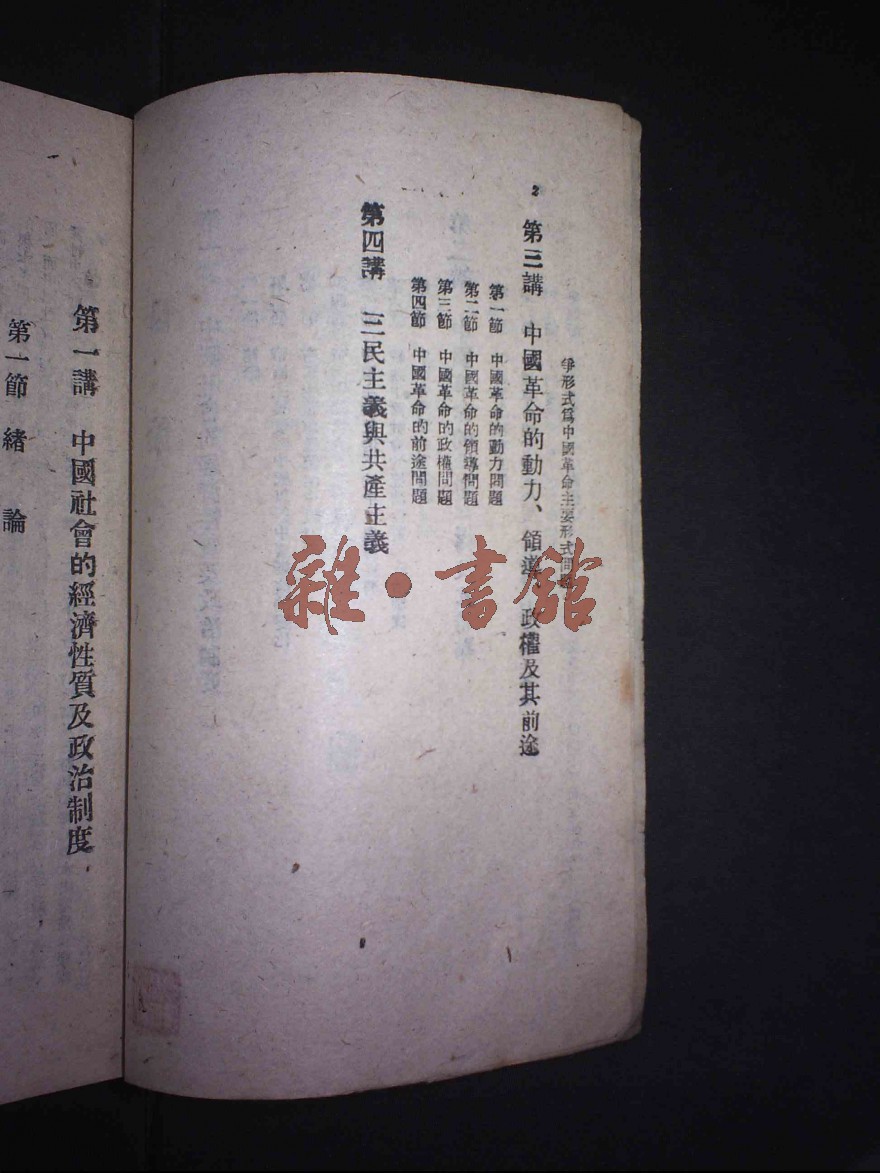 2
爭形式爲中國革命主要形式問題
第三講 中國革命的動力、領導、政權及其前途
第一節 中國革命的動力問題
第二節 中國革命的領導問題
第三節 中國革命的政權問題
第四節 中國革命的前途問題
第四講 三民主義與共產主義
第一講 中國社會的經濟性質及政治制度
第一節 緒論
雜·書館